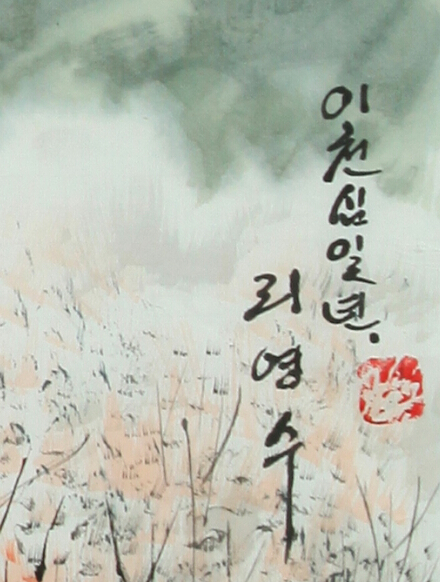 이천십일년.
리영수